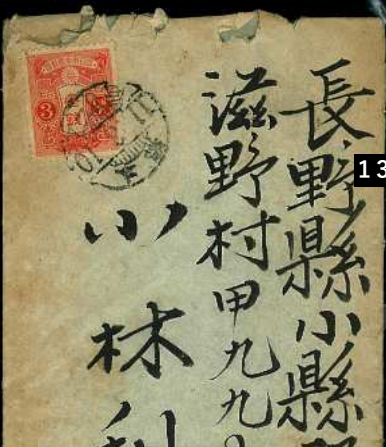 長野縣小縣
滋野村甲九九
小林利
3
13